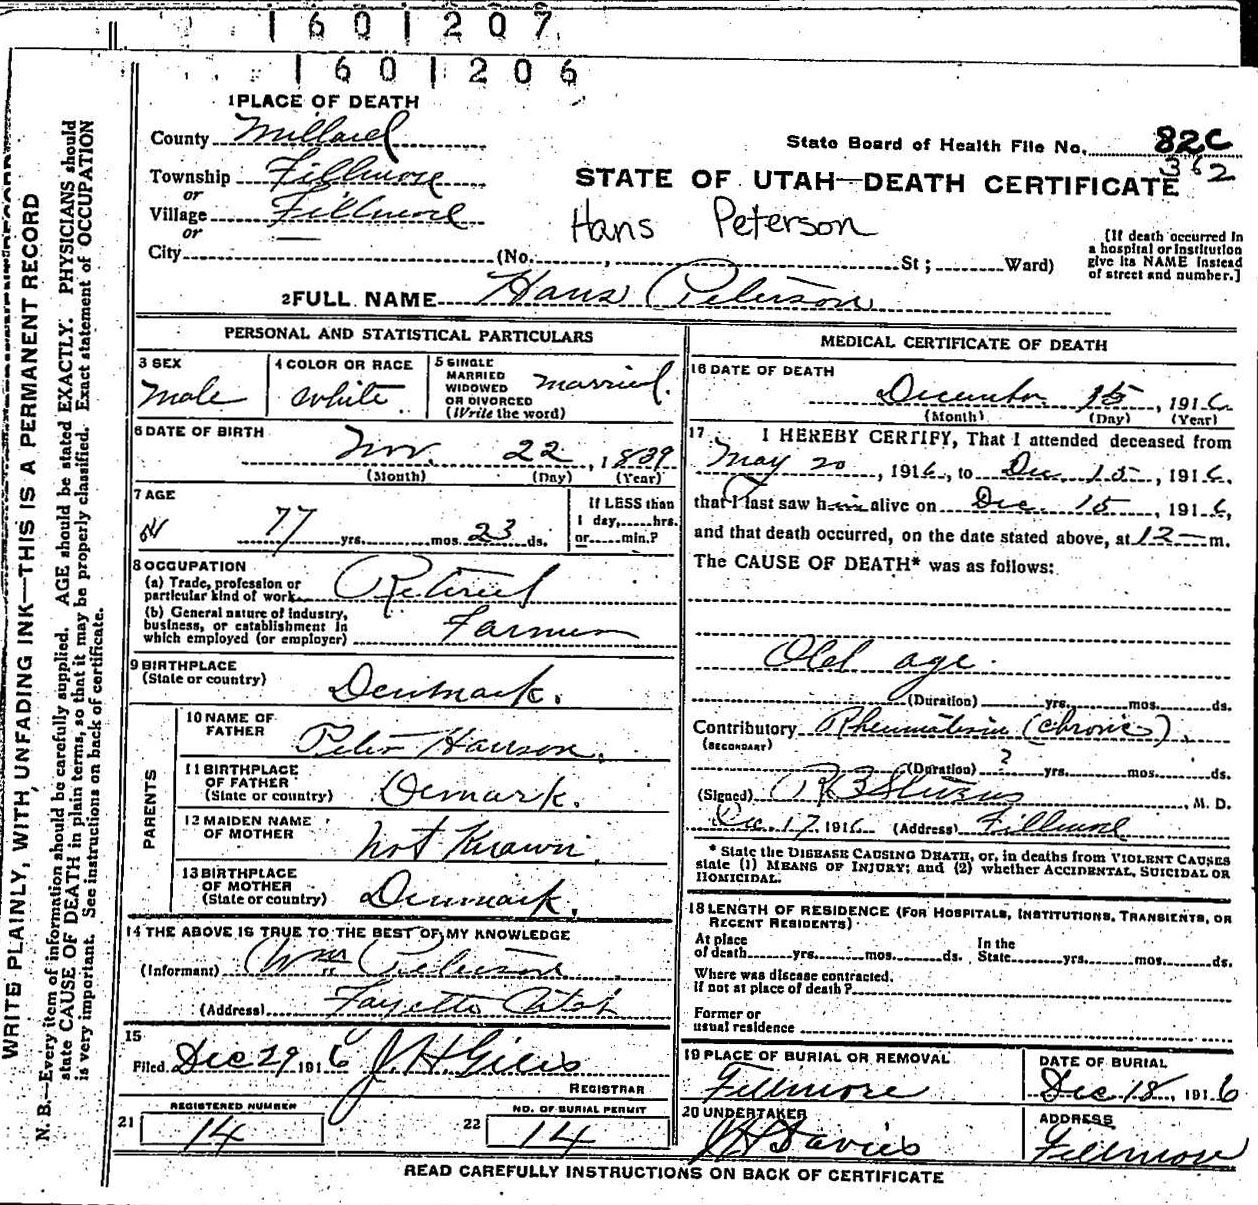 1601207
1601206
1 PLACE OF DEATH
County Millard
Township Fillmore
or
Village Fillmore
or
City (No. , St ; Ward)
State Board of Health File No. 82C
362
STATE OF UTAH—DEATH CERTIFICATE
Hans Peterson
[If death occurred in
a hospital or institution
give its NAME instead
of street and number.]
2 FULL NAME Hans Peterson
PERSONAL AND STATISTICAL PARTICULARS
3 SEX
Male
4 COLOR OR RACE
White
5 SINGLE
MARRIED
WIDOWED
OR DIVORCED
(Write the word)
Married.
6 DATE OF BIRTH
Nov. 22, 1839
(Month) (Day) (Year)
7 AGE
77 yrs. mos. 23 ds.
If LESS than
1 day, hrs.
or min.?
8 OCCUPATION
(a) Trade, profession or
particular kind of work Retired
(b) General nature of industry,
business, or establishment in
which employed (or employer) Farmer
9 BIRTHPLACE
(State or country) Denmark.
PARENTS
10 NAME OF
FATHER Peter Hanson.
11 BIRTHPLACE
OF FATHER
(State or country) Demark.
12 MAIDEN NAME
OF MOTHER not Known.
13 BIRTHPLACE
OF MOTHER
(State or country) Denmark.
14 THE ABOVE IS TRUE TO THE BEST OF MY KNOWLEDGE
(Informant) Wm Peterson
(Address) Fayette Utah
15
Filed Dec 29 1916 J. H. Giles
REGISTRAR
REGISTERED NUMBER
21 14
NO. OF BURIAL PERMIT
22 14
MEDICAL CERTIFICATE OF DEATH
16 DATE OF DEATH
December 15, 1916
(Month) (Day) (Year)
17 I HEREBY CERTIFY, That I attended deceased from
May 20, 1916, to Dec. 15, 1916,
that I last saw him alive on Dec. 15, 1916,
and that death occurred, on the date stated above, at 12 m.
The CAUSE OF DEATH* was as follows:
Old age.
(Duration) yrs. mos. ds.
Contributory Rheumatism (chronic).
(SECONDARY)
(Duration) ? yrs. mos. ds.
(Signed) R B Stevens, M. D.
Dec. 17, 1916 (Address) Fillmore
* State the DISEASE CAUSING DEATH, or, in deaths from VIOLENT CAUSES
state (1) MEANS OF INJURY; and (2) whether ACCIDENTAL, SUICIDAL OR
HOMICIDAL.
18 LENGTH OF RESIDENCE (FOR HOSPITALS, INSTITUTIONS, TRANSIENTS, OR
RECENT RESIDENTS)
At place
of death yrs. mos. ds.
In the
State yrs. mos. ds.
Where was disease contracted.
If not at place of death?
Former or
usual residence
19 PLACE OF BURIAL OR REMOVAL
Fillmore
DATE OF BURIAL
Dec 18, 1916
20 UNDERTAKER
J H Davies
ADDRESS
Fillmore
READ CAREFULLY INSTRUCTIONS ON BACK OF CERTIFICATE
WRITE PLAINLY, WITH UNFADING INK—THIS IS A PERMANENT RECORD
N. B.—Every item of information should be carefully supplied. AGE should be stated EXACTLY. PHYSICIANS should
state CAUSE OF DEATH in plain terms, so that it may be properly classified. Exact statement of OCCUPATION
is very important. See instructions on back of certificate.